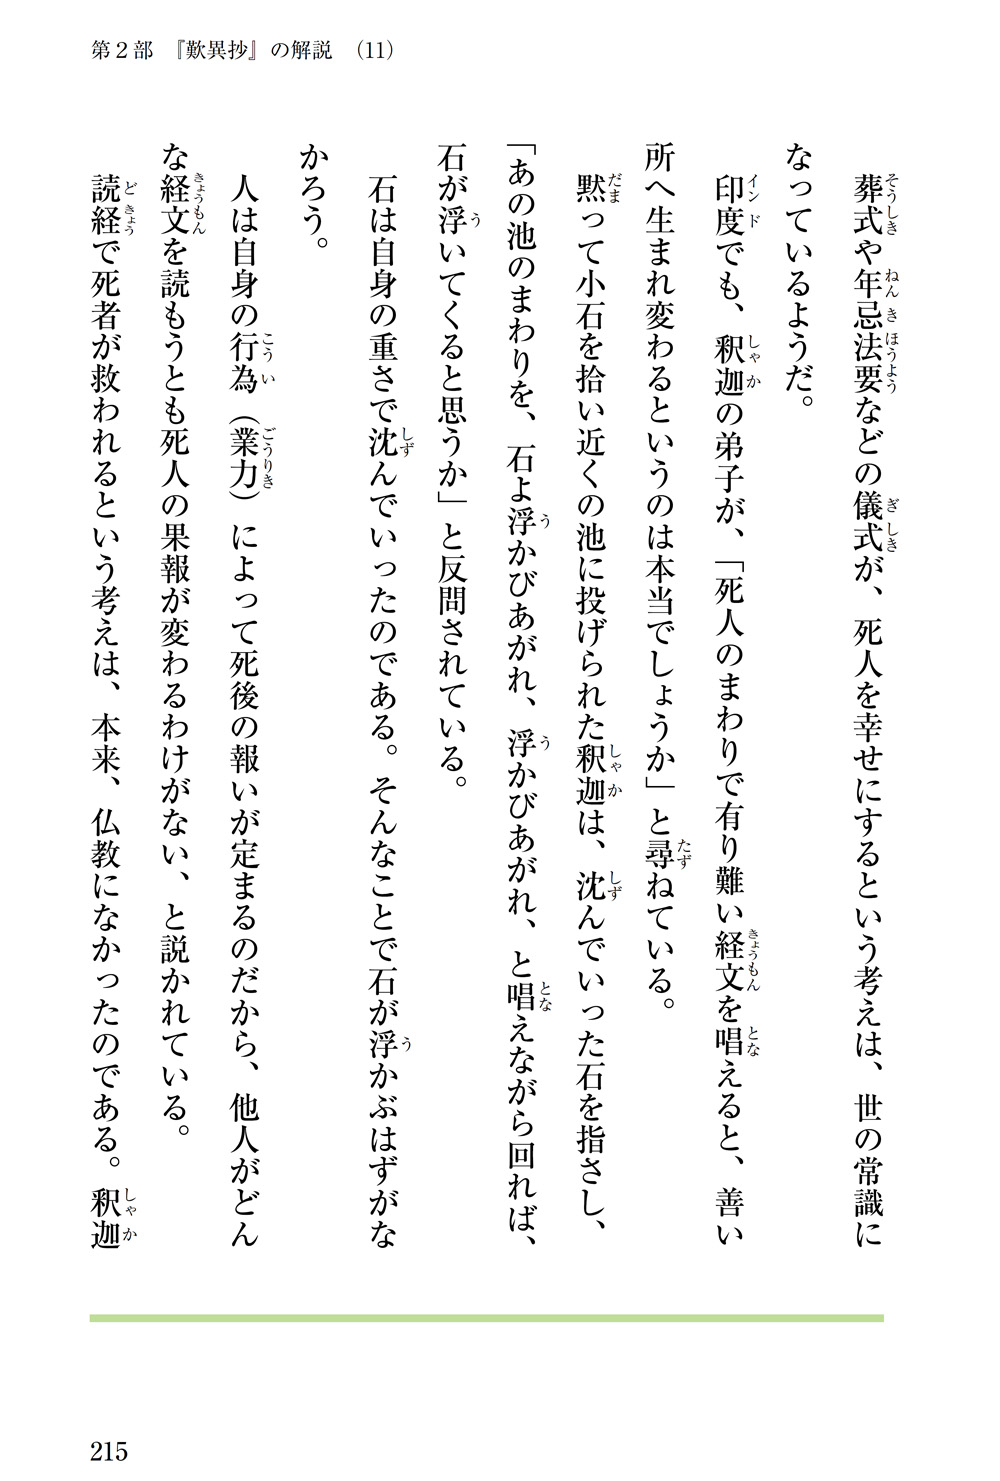 第２部　『歎異抄』の解説　（11）
葬式や年忌法要などの儀式が、死人を幸せにするという考えは、世の常識に
なっているようだ。
印度でも、釈迦の弟子が、「死人のまわりで有り難い経文を唱えると、善い
所へ生まれ変わるというのは本当でしょうか」と尋ねている。
黙って小石を拾い近くの池に投げられた釈迦は、沈んでいった石を指さし、
「あの池のまわりを、石よ浮かびあがれ、浮かびあがれ、と唱えながら回れば、
石が浮いてくると思うか」と反問されている。
石は自身の重さで沈んでいったのである。そんなことで石が浮かぶはずがな
かろう。
人は自身の行為（業力）によって死後の報いが定まるのだから、他人がどん
な経文を読もうとも死人の果報が変わるわけがない、と説かれている。
読経で死者が救われるという考えは、本来、仏教になかったのである。釈迦
215